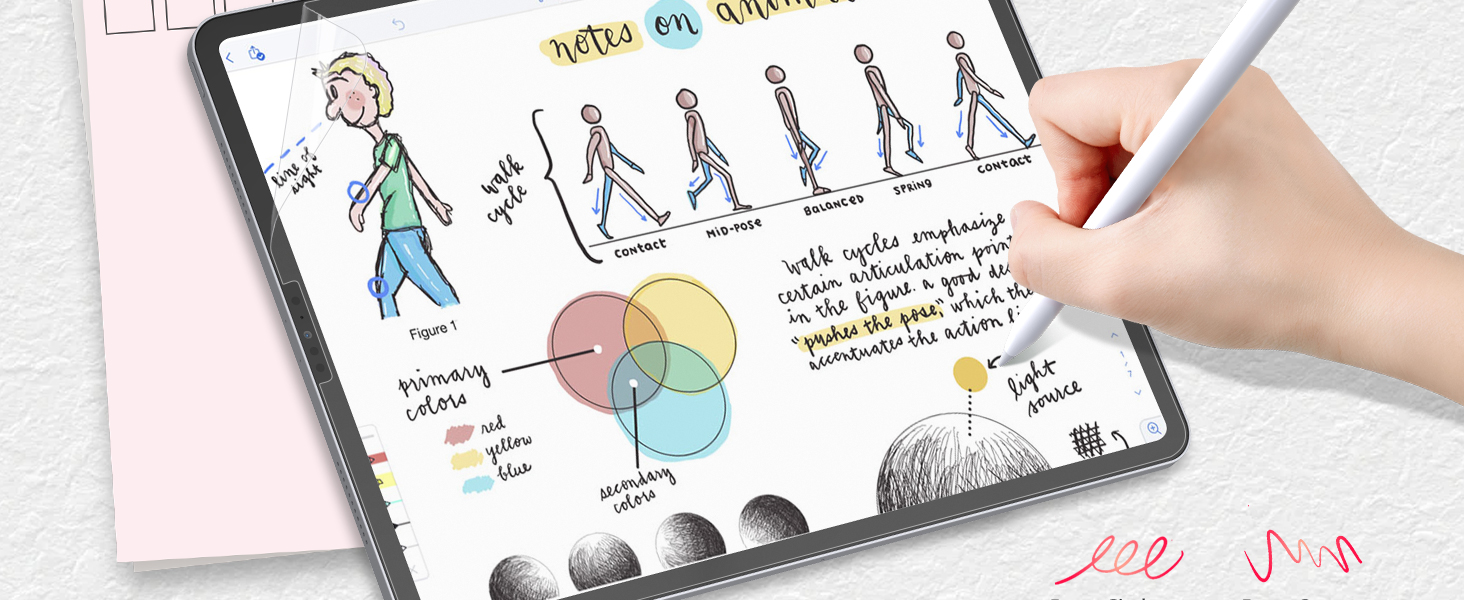 notes on
line of
sight
walk
cycle
CONTACT
MID-POSE
BALANCED
SPRING
CONTACT
Figure 1
walk cycles emphasize
certain articulation
in the figure. a good
"pushes the pose," which the
accentuates the action
primary
colors
red
yellow
blue
secondary
colors
light
source